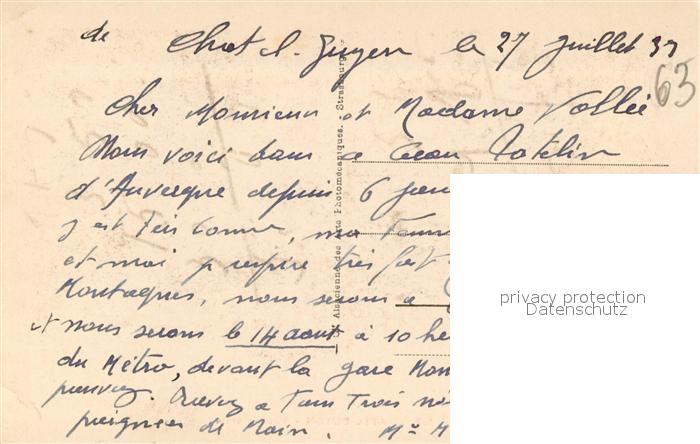 de Chatel-Guyon le 27 Juillet 37
63
Cher Monsieur et Madame Vollée
Nous voici dans ce beau
d'Auvergne depuis 6 jour
y est très bonne, ma femm
et moi je respire très fort
Montagnes, nous serons à
et nous serons le 14 aout à 10 he
du Métro, devant la gare Mon
pouvez. Recevez a Tous Trois no
poignées de Main. Mr M
Cie Alsacienne des Arts Photomécaniques, Strasbourg
privacy protection
Datenschutz